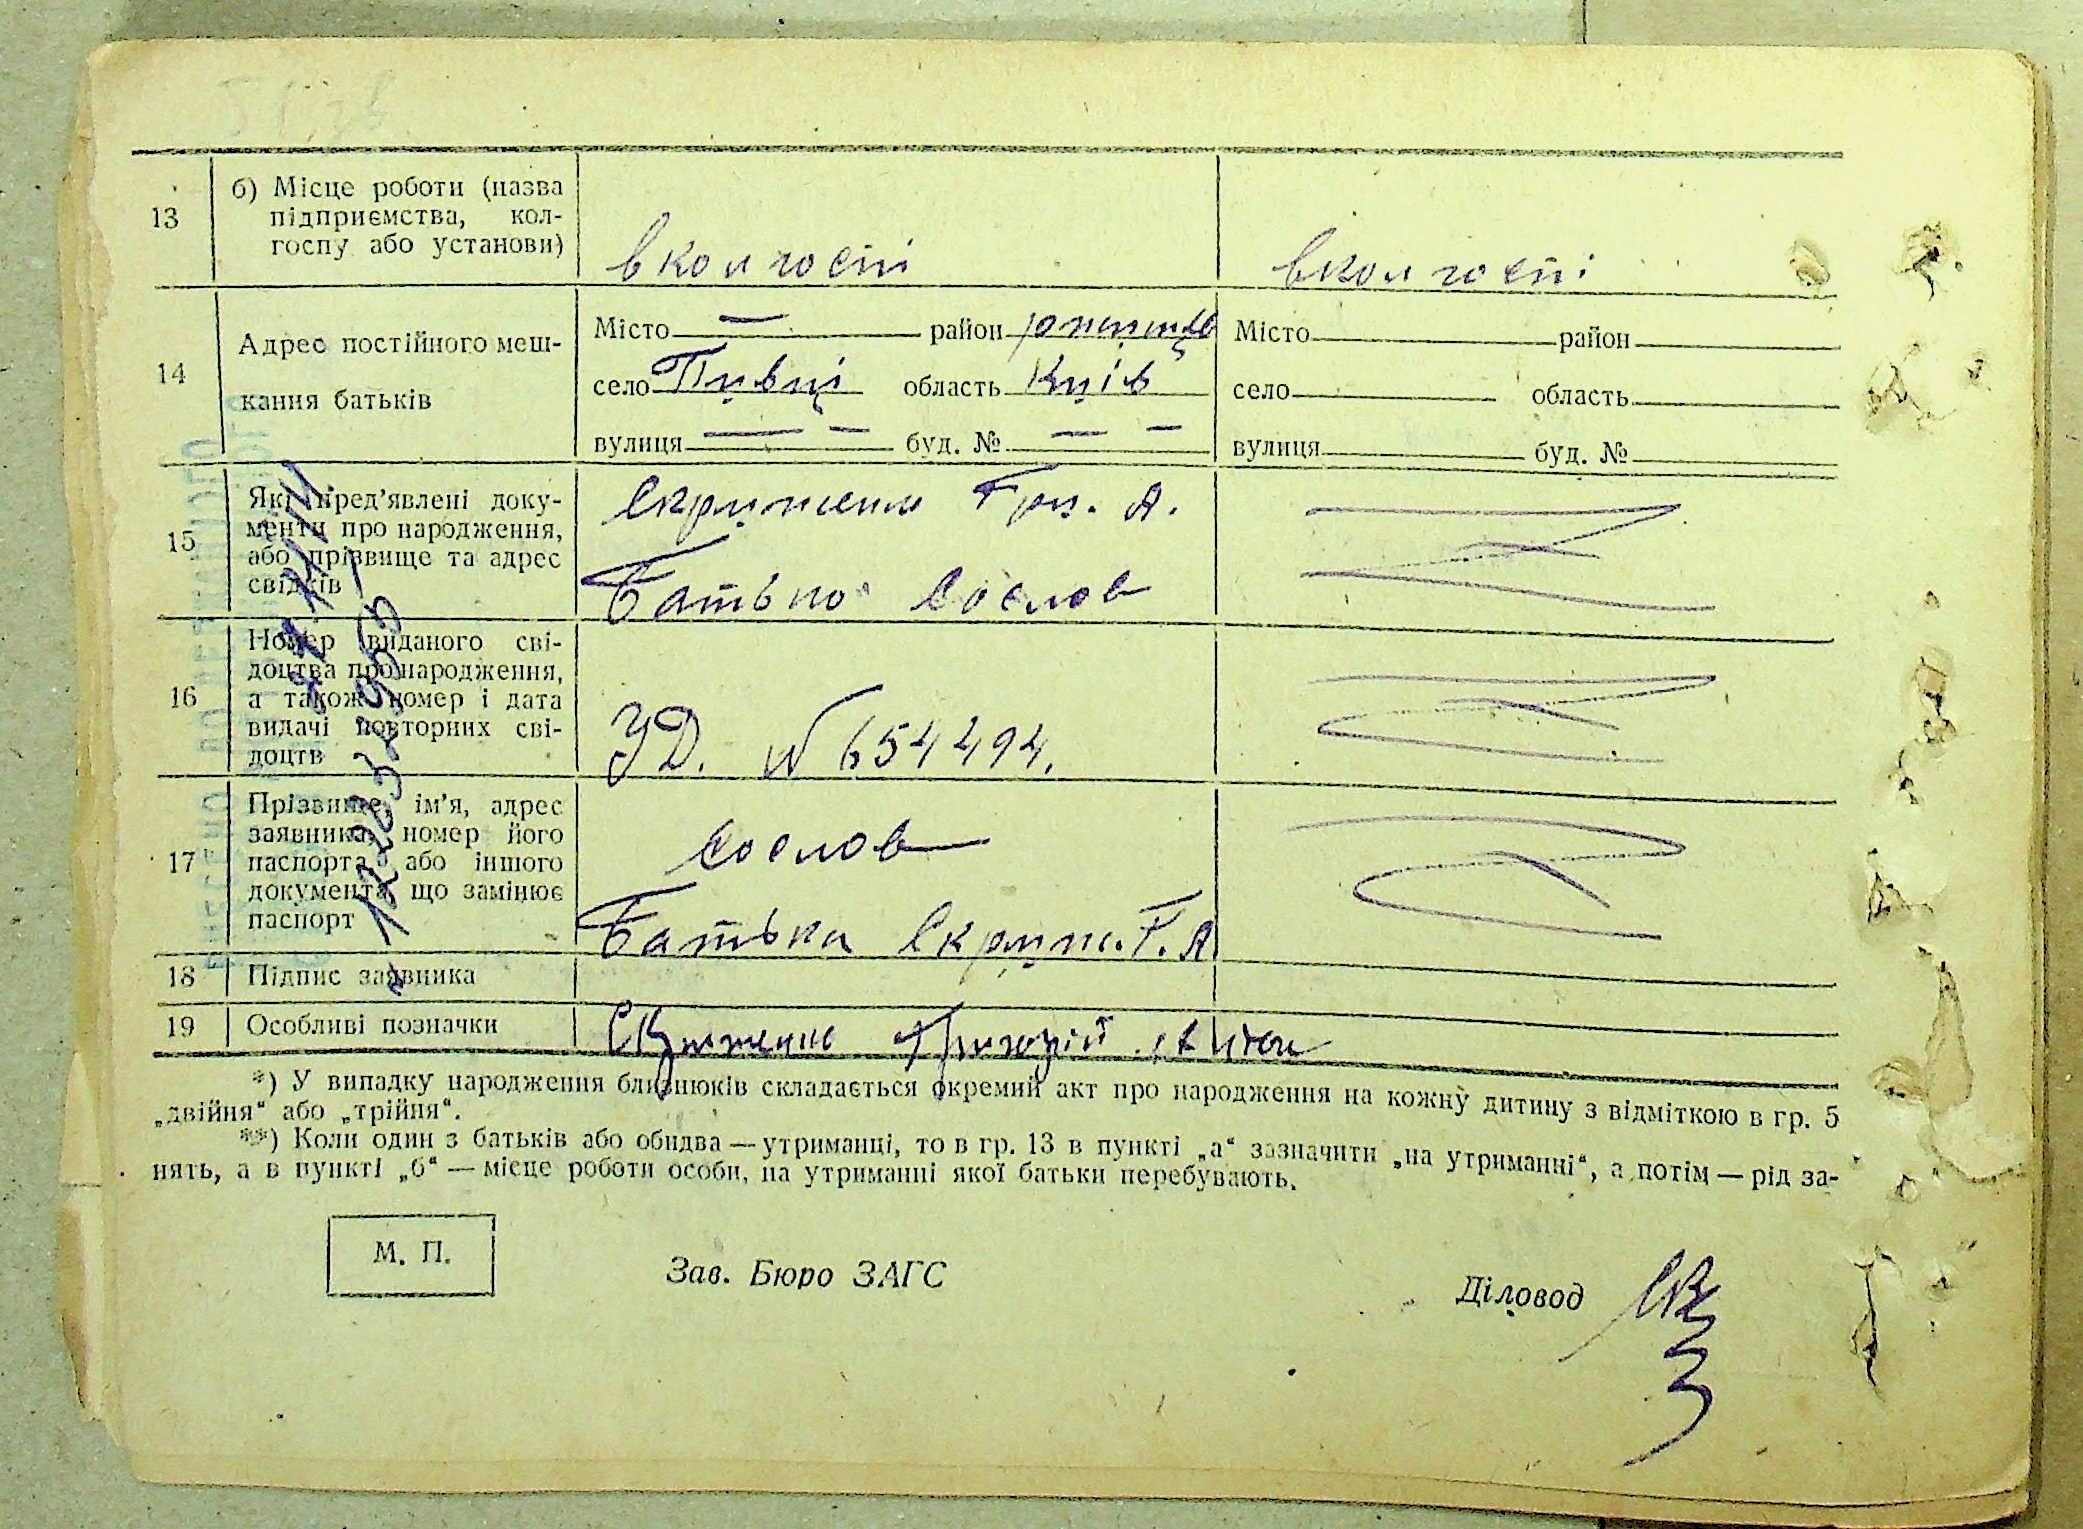 13
б) Місце роботи (назва
підприємства, кол-
госпу або установи)
в колгоспі
в колгоспі
14
Адрес постійного меш-
кання батьків
Місто — район
село Півці область Київ
вулиця — — буд. № — —
Місто район
село область
вулиця буд. №
15
Які пред’явлені доку-
менти про народження,
або прізвище та адрес
свідків
Скриженко Гри. А.
Батько Со слов
16
Номер виданого сві-
доцтва про народження,
а також номер і дата
видачі повторних сві-
доцтв
УД. № 654494.
17
Прізвище, ім’я, адрес
заявника, номер його
паспорта або іншого
документа, що замінює
паспорт
Со слов
Батька Скриж. Г. А.
18 Підпис заявника
19 Особливі позначки
Скриженко Григорій
*) У випадку народження близнюків складається окремий акт про народження на кожну дитину з відміткою в гр. 5
„двійня“ або „трійня“.
**) Коли один з батьків або обидва — утриманці, то в гр. 13 в пункті „а“ зазначити „на утриманні“, а потім — рід за-
нять, а в пункті „б“ — місце роботи особи, на утриманні якої батьки перебувають.
М. П.
Зав. Бюро ЗАГС
Діловод